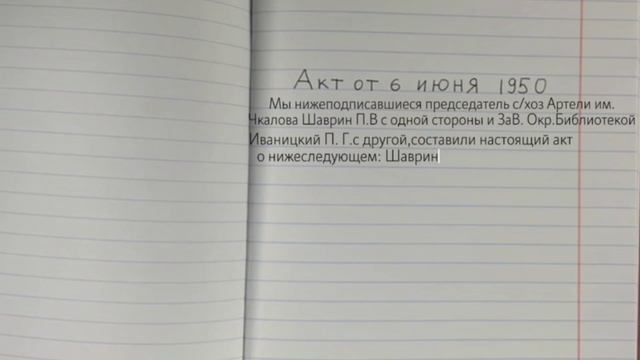 Акт от 6 июня 1950
Мы нижеподписавшиеся председатель с/хоз Артели им.
Чкалова Шаврин П.В с одной стороны и ЗаВ. Окр.Библиотекой
Иваницкий П. Г.с другой,составили настоящий акт
о нижеследующем: Шаврин